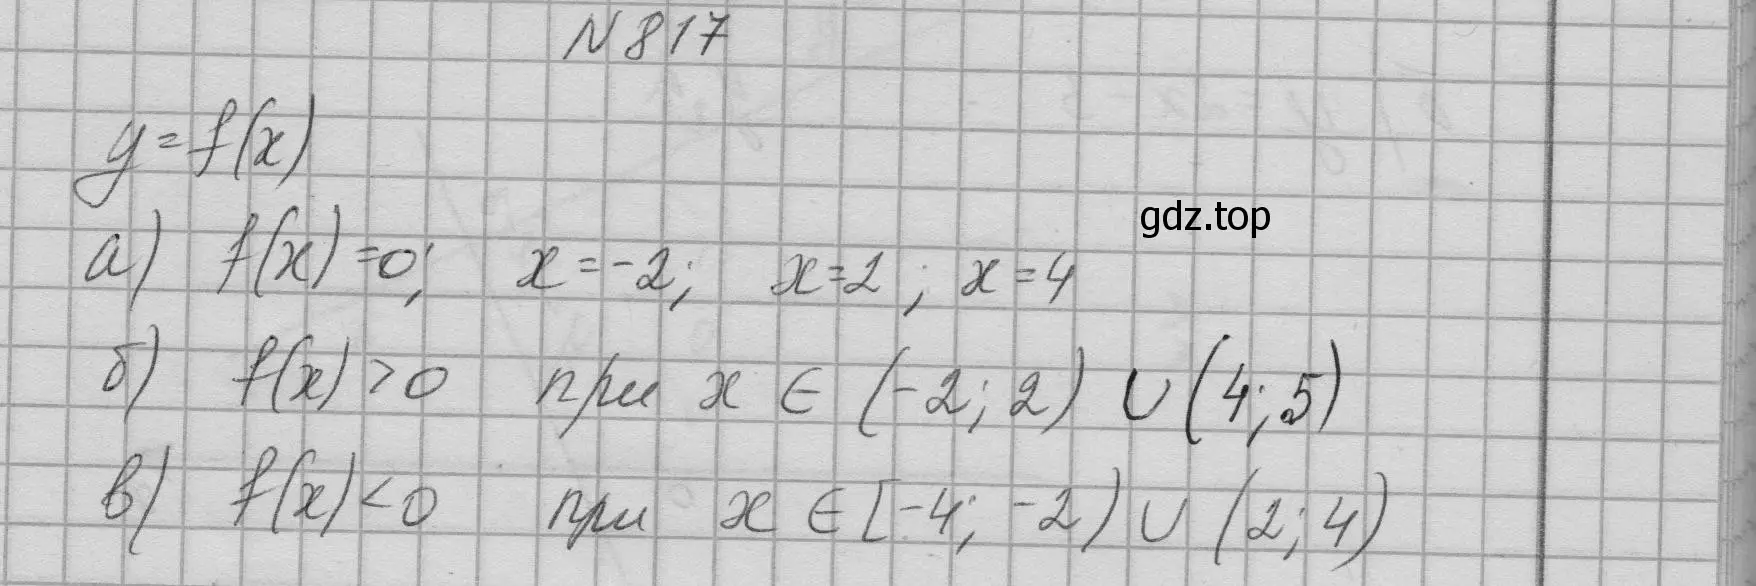 N 817
y=f(x)
gdz.top
а) f(x)=0; x=-2; x=2; x=4
б) f(x)>0 при x ∈ (-2; 2) ∪ (4; 5)
в) f(x)<0 при x ∈ [-4; -2) ∪ (2; 4)